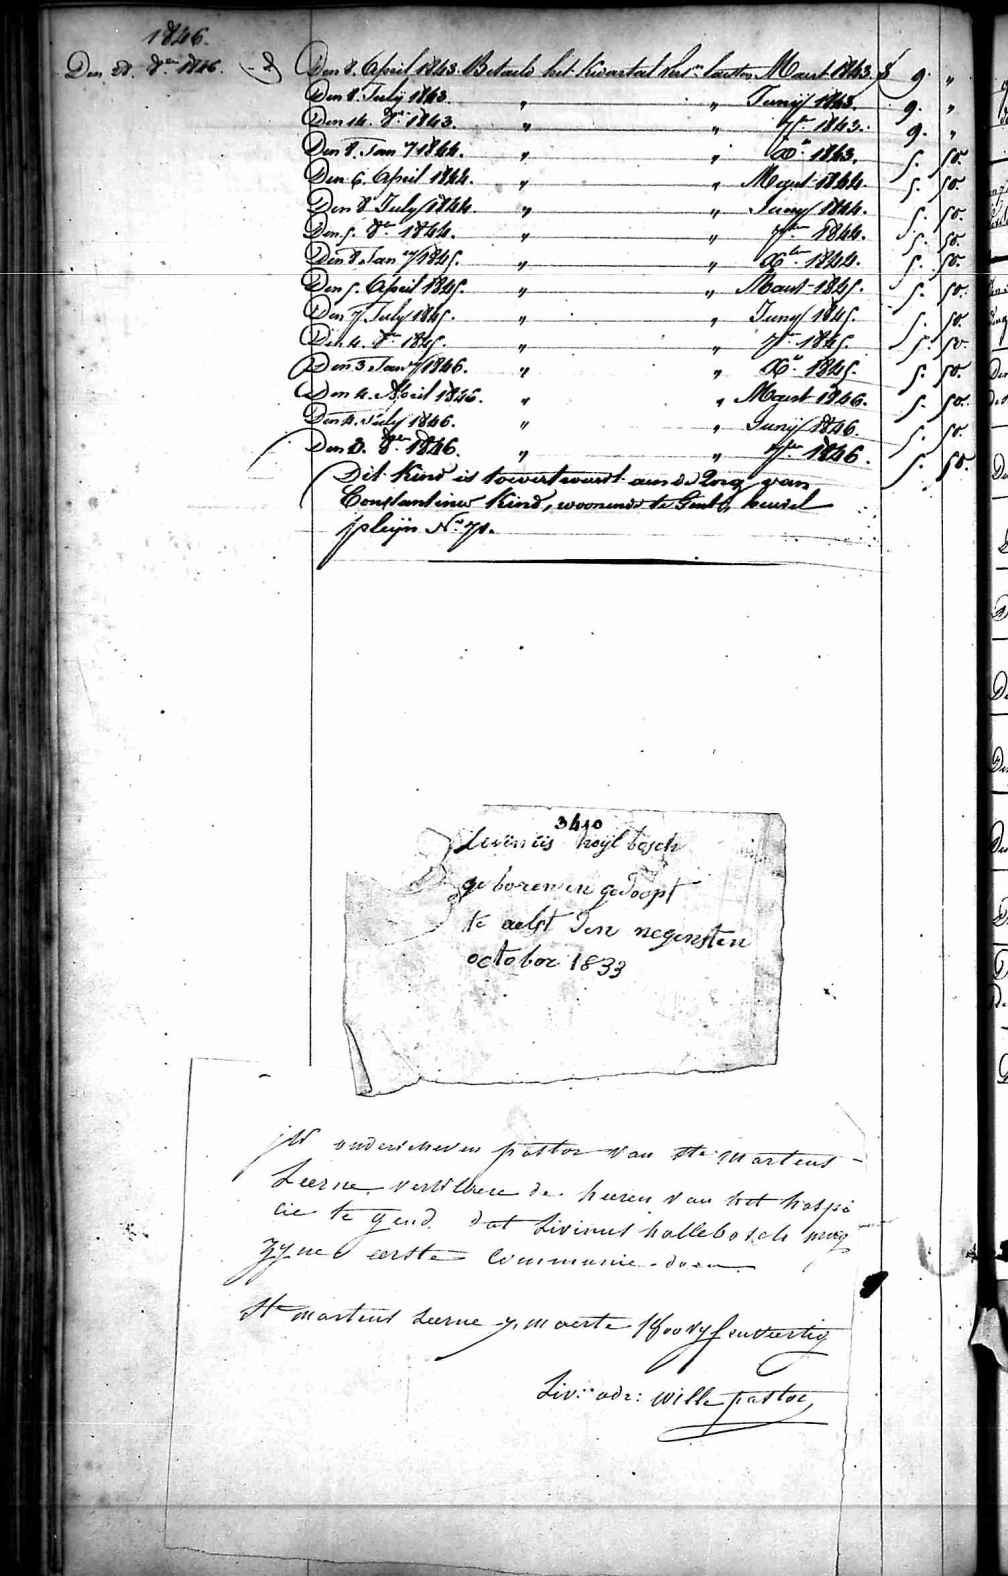 1846.
Den 28. 8er 1846. - 2 Den 8. April 1843. Betaeld het kwartael verst. laeston Maert 1843. f 9. "
Den 8. July 1843. " " Junij 1843. 9. "
Den 14. 8er 1843. " " 7er 1843. 9. "
Den 8. Jany 1844. " " Xer 1843. 5. 50.
Den 6. April 1844. " " Maert 1844. 5. 50.
Den 8 July 1844. " " Juny 1844. 5. 50.
Den 5. 8er 1844. " " 7ber 1844. 5. 50.
Den 8. Jany 1845. " " Xber 1844. 5. 50.
Den 5. April 1845. " " Maert 1845. 5. 50.
Den 7 July 1845. " " Juny 1845. 5. 50.
Den 4. 8er 1845. " " 7er 1845. 5. 50.
Den 3 Jany 1846. " " Xer 1845. 5. 50.
Den 4. April 1846. " " Maert 1846. 5. 50.
Den 4. July 1846. " " Junij 1846. 5. 50.
Den 3. 8ber 1846. " " 7ber 1846. 5. 50.
Dit Kind is toevertrouwt aen de Zorg van
Constantinus Kind, woonende te Gent,
pleijn No 70.
3410
Livinus hoijlbosch
geboren en gedoopt
te aelst den negensten
october 1833
ik onderscheven pastor van Ste martens
Leerne verklaere de heeren van het hospi
cie te gend dat Livinus hallebosch mag
zyne eerste Communie doen
St martens Leerne 7 maerte 1800 vyf en veertig
Liv: ade: Wille pastor